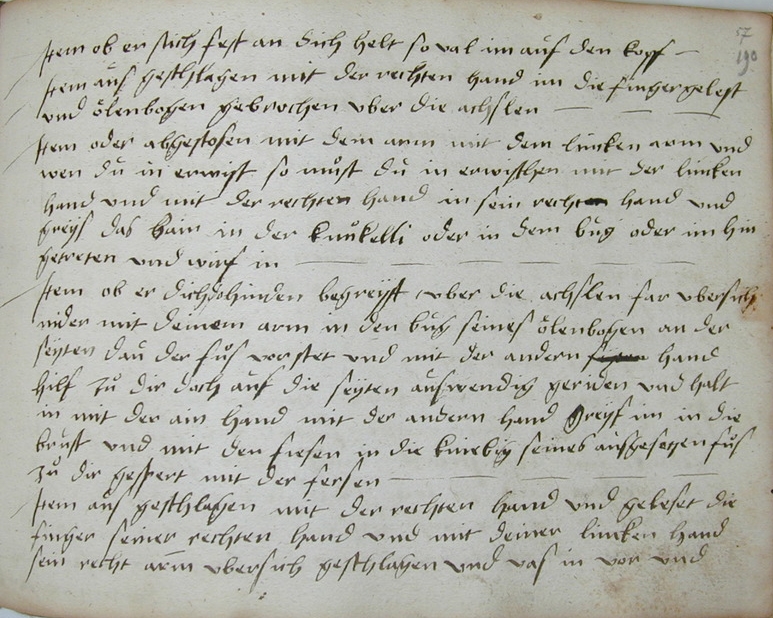 57
190
Item ob er sich fest an dich helt so val im auf den kopf
Item aus geschlagen mit der rechten hand im die finger gelest
und ölenbogen gebrochen vber die achslen
Item oder abgestosen mit dem arm mit dem lincken arm und
wen du in erwist so must du in erwischen mit der lincken
hand vnd mit der rechten hand in sein rechte hand vnd
greyf das bain in der knukelli oder in dem bug oder im hin
getreten vnd wirf in
Item ob er dich dohinden begreyft vber die achslen far vbersich
nider mit deinem arm in den bug seines ölenbogen an der
seyten dau der fus vorstet vnd mit der andern hand
hilf zu dir doch auf die seyten auswendig geriden vnd halt
in mit der ain hand mit der andern hand greyf im in die
brust vnd mit den fiesen in die kniebig seines ausgesetzen fus
zu dir gespert mit der fersen
Item aus geschlagen mit der rechten hand vnd geleset die
finger seiner rechten hand vnd mit deiner lincken hand
sein recht arm vbersich geschlagen vnd vas in vor vnd